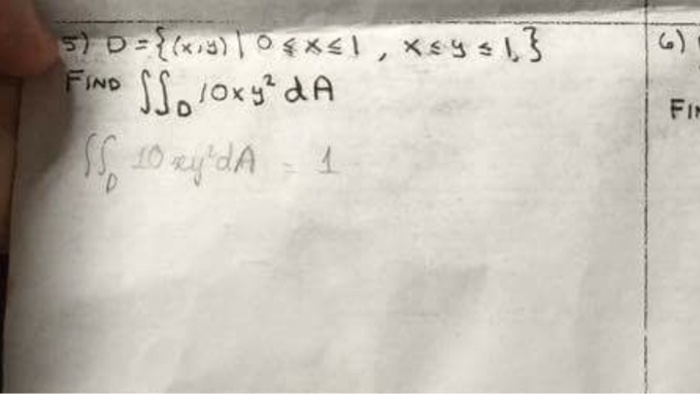 5) D = {(x,y) | 0 ≤ x ≤ 1, x ≤ y ≤ 1,}
6)
FIND ∬_D 10xy² dA
∬_D 10xy² dA = 1